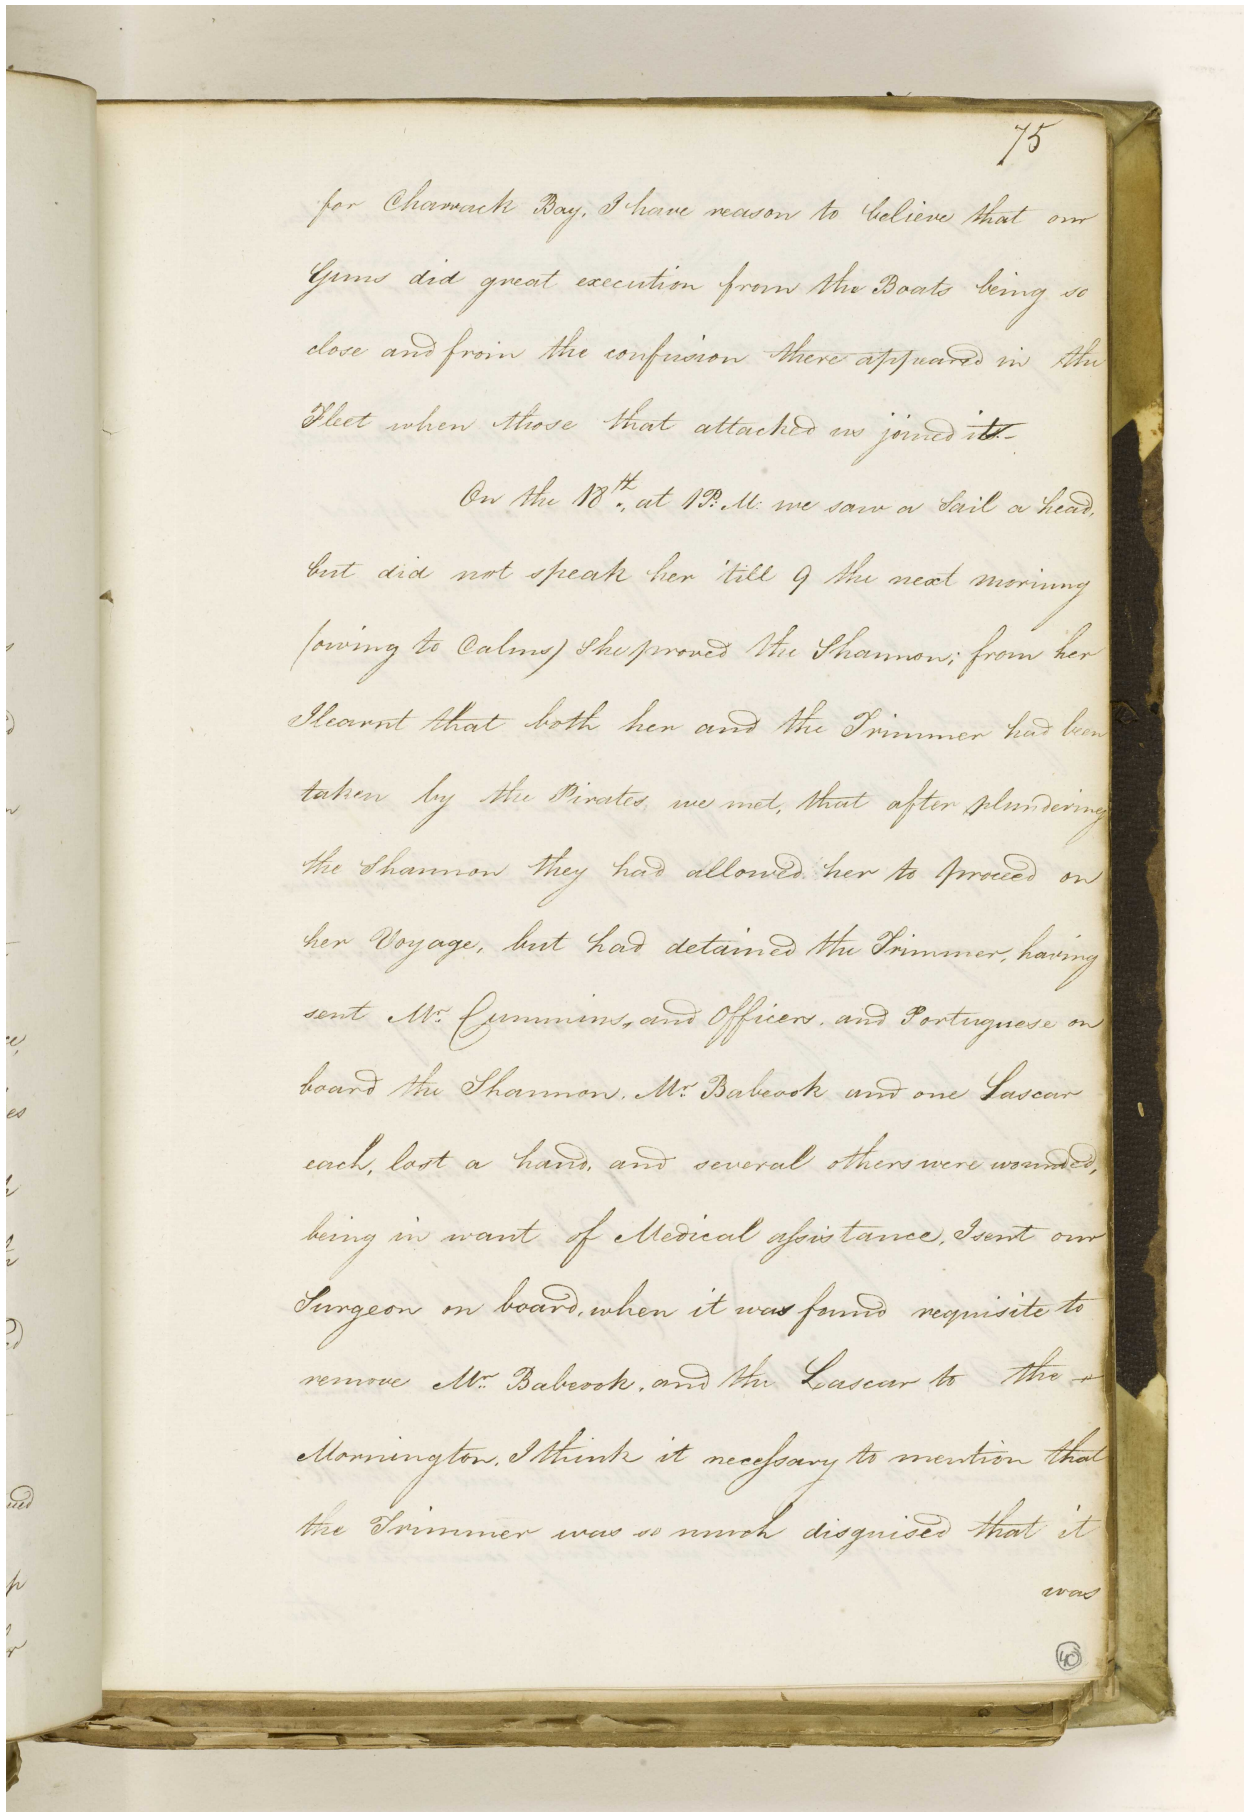 75
for Charrack Bay, I have reason to believe that our
Guns did great execution from the Boats being so
close and from the confusion there appeared in the
Fleet when those that attacked us joined it.-
On the 18th., at 1 P. M. we saw a Sail a head,
but did not speak her 'till 9 the next morning
(owing to Calms) She proved the Shannon; from her
I learnt that both her and the Trimmer had been
taken by the Pirates, we met, that after plundering
the Shannon they had allowed her to proceed on
her Voyage, but had detained the Trimmer, having
sent Mr. Cummins, and Officers, and Portuguese on
board the Shannon. Mr. Babcook and one Lascar
each, lost a hand, and several others were wounded,
being in want of Medical assistance, I sent our
Surgeon on board, when it was found requisite to
remove Mr. Babcook, and the Lascar to the -
Mornington. I think it necessary to mention that
the Trimmer was so much disguised that it
was
40